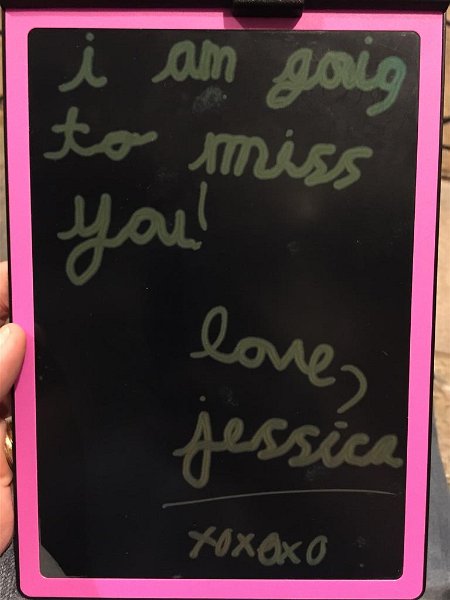 i am goig
to miss
you!
love,
jessica
xoxoxo